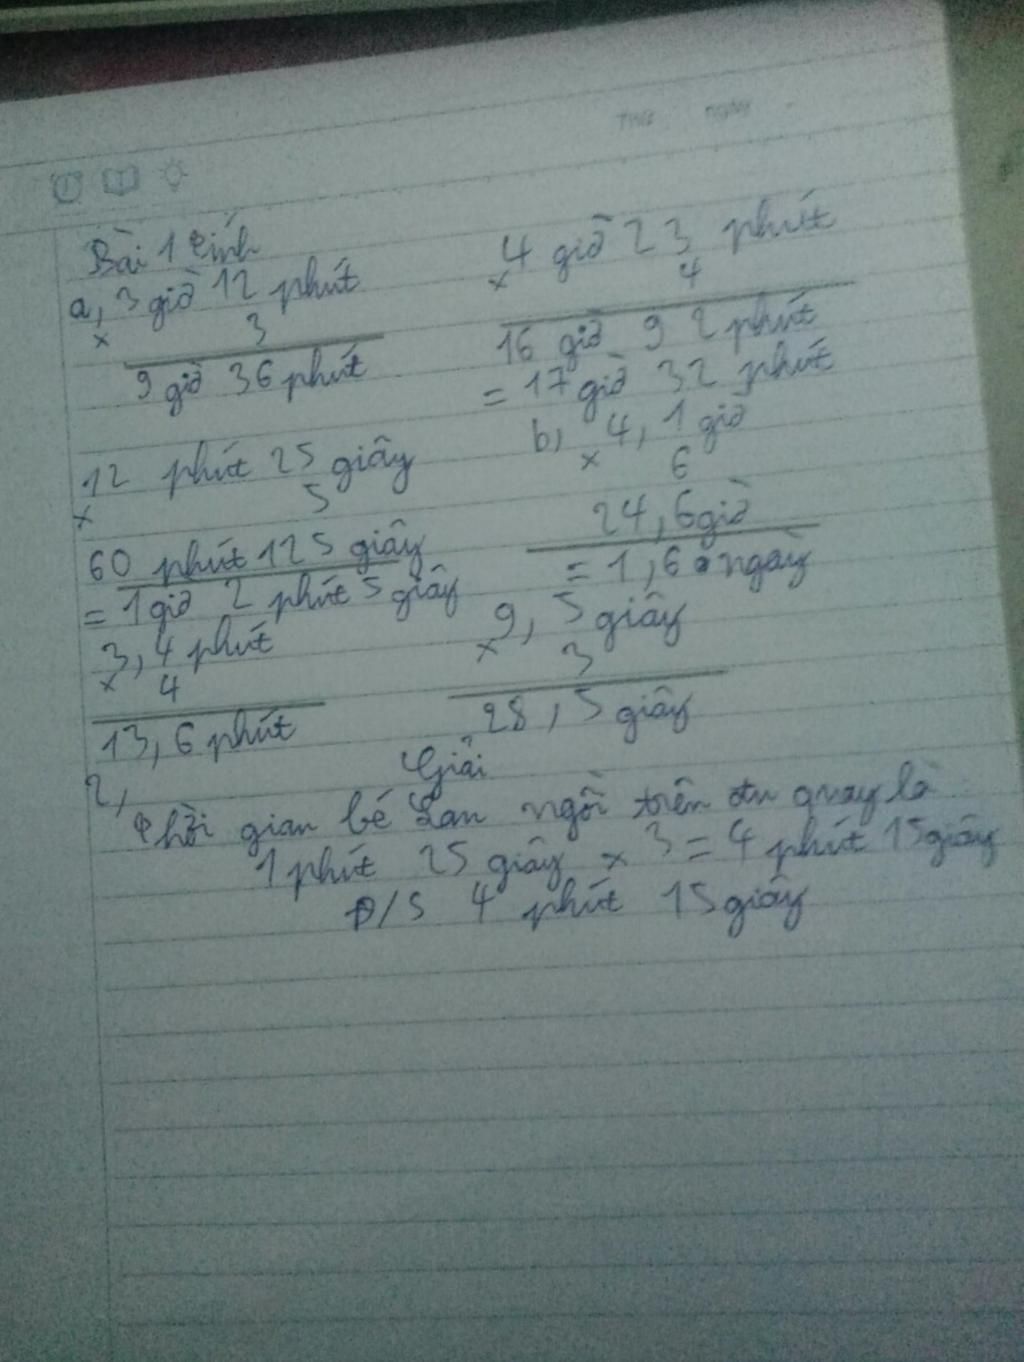 Bài 1 tính
a, 3 giờ 12 phút
x 3
9 giờ 36 phút
4 giờ 23 phút
x 4
16 giờ 92 phút
= 17 giờ 32 phút
12 phút 25 giây
x 5
60 phút 125 giây
= 1 giờ 2 phút 5 giây
b, 4,1 giờ
x 6
24,6 giờ
= 1,6 ngày
3,4 phút
x 4
13,6 phút
9,5 giây
x 3
28,5 giây
2, Giải
Thời gian bé Lan ngồi trên đu quay là
1 phút 25 giây x 3 = 4 phút 15 giây
Đ/S 4 phút 15 giây